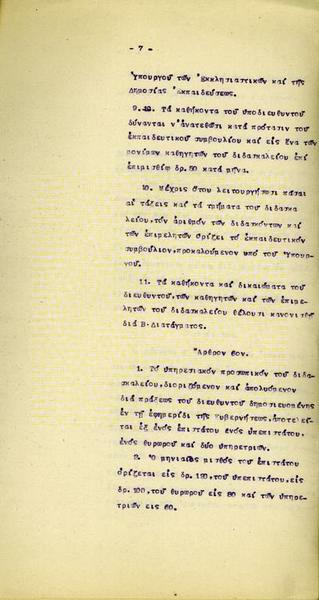 - 7 -
Ὑπουργοῦ τῶν Ἐκκλησιαστικῶν καί τῆς
Δημοσίας Ἐκπαιδεύσεως.
9. Τά καθήκοντα τοῦ ὑποδιευθυντοῦ
δύνανται ν'ἀνατεθῶσι κατά πρότασιν τοῦ
ἐκπαιδευτικοῦ συμβουλίου καί εἰς ἕνα τῶν
μονίμων καθηγητῶν τοῦ διδασκαλείου ἐπί
ἐπιμισθίῳ δρ. 50 κατά μῆνα.
10. Μέχρις ὅτου λειτουργήσωσι πᾶσαι
αἱ τάξεις καί τά τμήματα τοῦ διδασκα
λείου, τόν ἀριθμόν τῶν διδασκόντων καί
τῶν ἐπιμελητῶν ὁρίζει τό ἐκπαιδευτικόν
συμβούλιον, προκαλούμενον ὑπό τοῦ Ὑπουρ-
γοῦ.
11. Τά καθήκοντα καί δικαιώματα τοῦ
διευθυντοῦ, τῶν καθηγητῶν καί τῶν ἐπιμε-
λητῶν τοῦ διδασκαλείου θέλουσι κανονισθῆ
διά Β. Διατάγματος.
Ἄρθρον 6ον.
1. Τό ὑπηρεσιακόν προσωπικόν τοῦ διδα-
σκαλείου, διοριζόμενον καί ἀπολυόμενον
διά πράξεως τοῦ διευθυντοῦ δημοσιευομένης
ἐν τῇ ἐφημερίδι τῆς Κυβερνήσεως, ἀποτελεῖ-
ται ἐξ ἑνός ἐπιστάτου ἑνός ὑπεπιστάτου,
ἑνός θυρωροῦ καί δύο ὑπηρετριῶν.
2. Ὁ μηνιαῖος μισθός τοῦ ἐπιστάτου
ὁρίζεται εἰς δρ. 120, τοῦ ὑπεπιστάτου, εἰς
δρ. 100, τοῦ θυρωροῦ εἰς 80 καί τῶν ὑπηρε-
τριῶν εἰς 60.